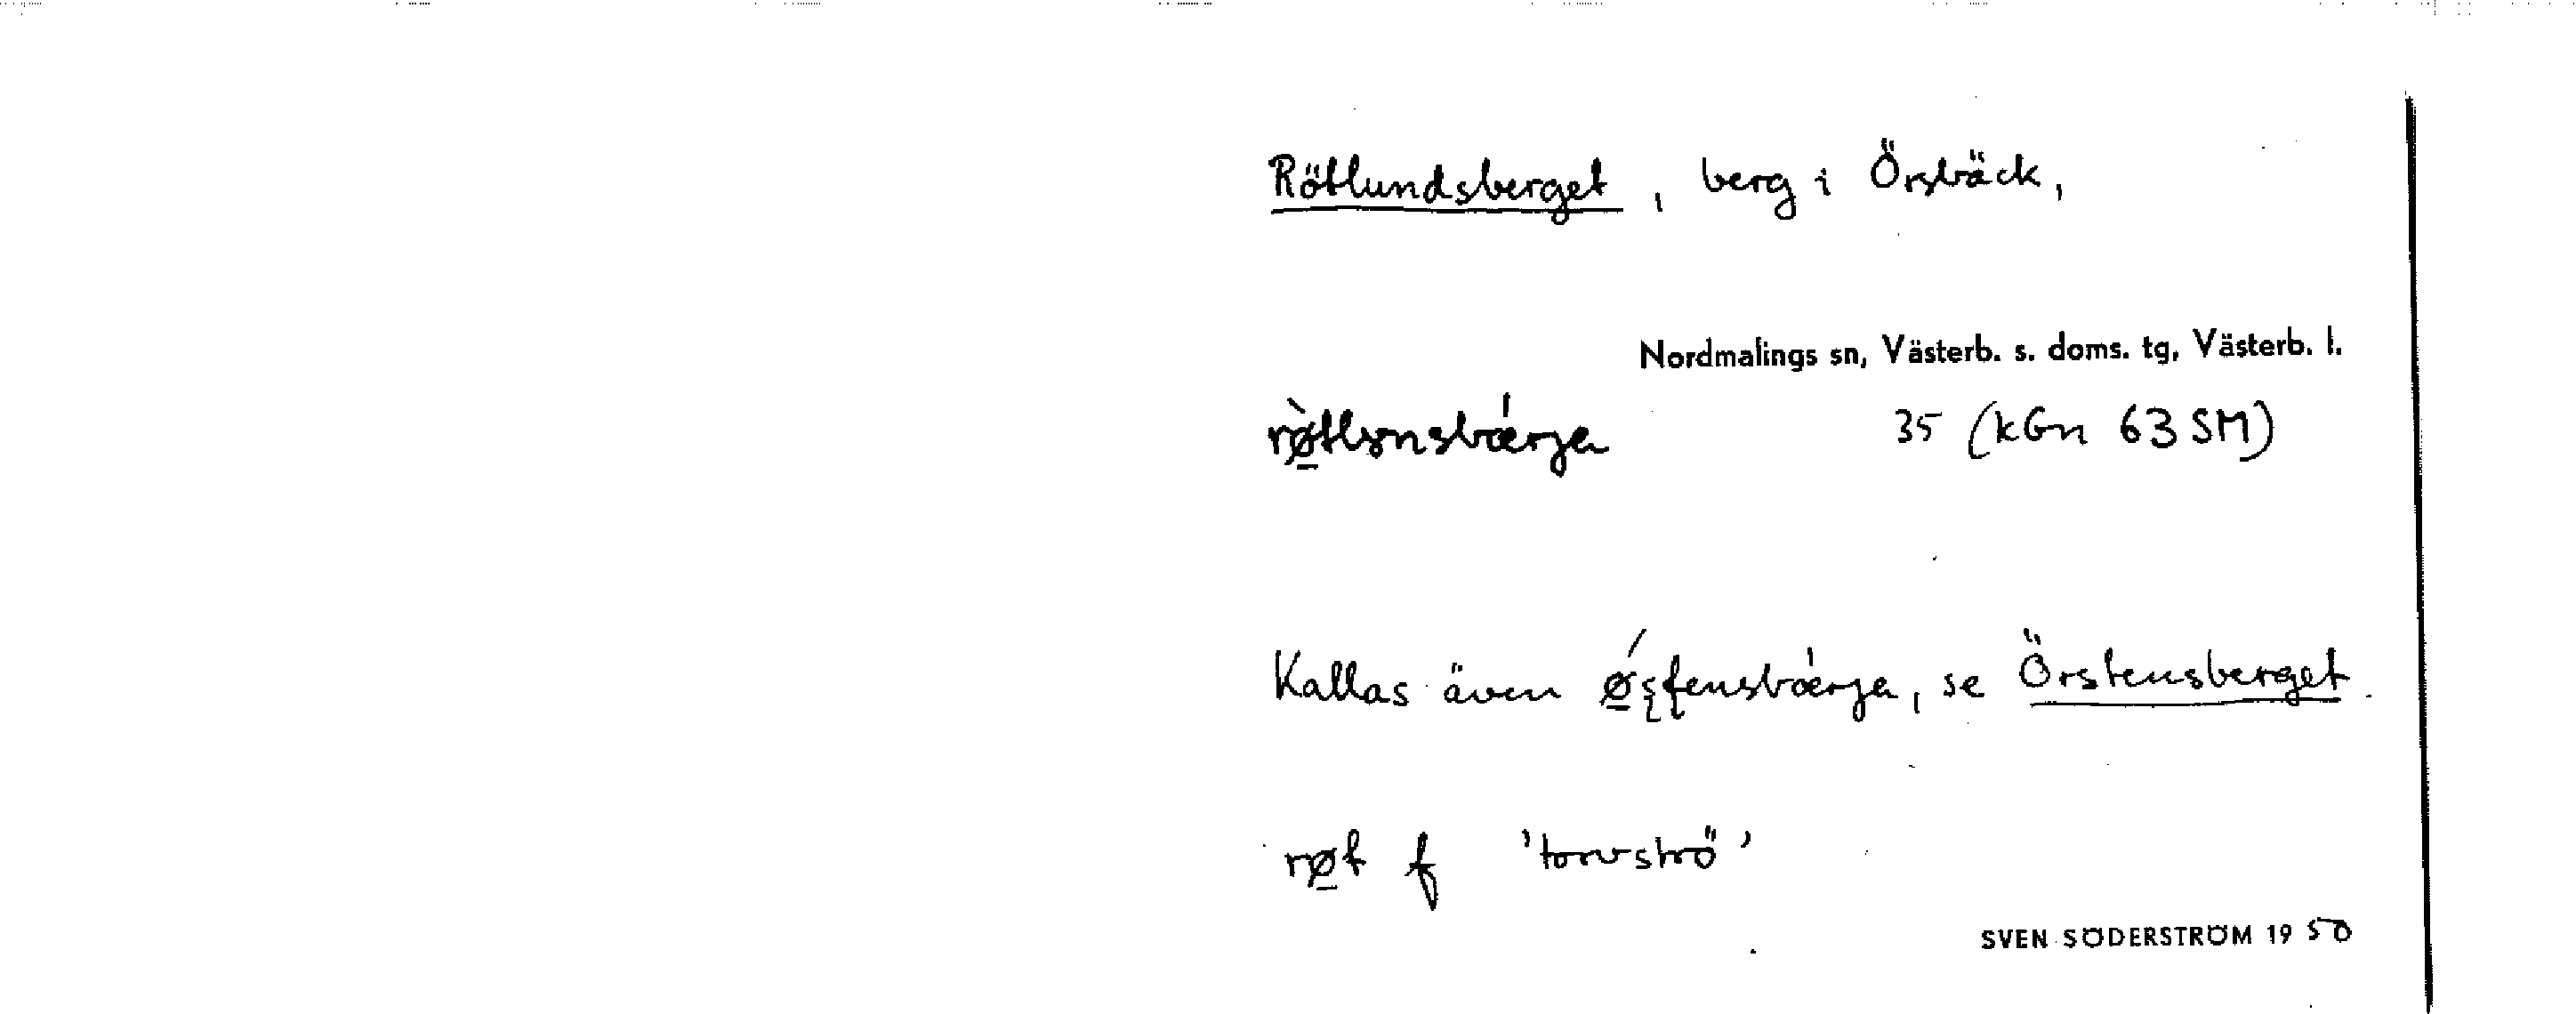 Rötlundsberget, berg i Örsbäck,
Nordmalings sn, Västerb. s. doms. tg, Västerb. l.
rø̲̀tlɤnsbǽrjɐ 35 (kGn 63 SM)
Kallas även ǿ̲ʂʈensbǽrjɐ, se Örstensberget.
rø̲t f 'torvströ'
SVEN SÖDERSTRÖM 1950